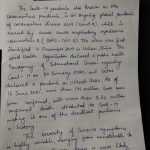 The Covid-19 pandemic, also known as the
Coronavirus pandemic, is an ongoing global pandemic
coronavirus disease 2019 (covid-19), which is
caused by severe acute respiratory syndrome
coronavirus 2 (SARS-CoV-2). The virus was first
identified in December 2019 in Wuhan, China. The
World Health Organization declared a Public Health
Emergency of International Concern regarding
Covid-19 on 30 January 2020, and later
declared a pandemic on 11 March 2020. As
of 2021, more than million cases have
been confirmed, with more than million
confirmed deaths attributed to Covid-19,
making it one of the deadliest pandemics
in history
The severity of Covid-19 symptoms
is highly variable, ranging from unnoticeable to
is more likely